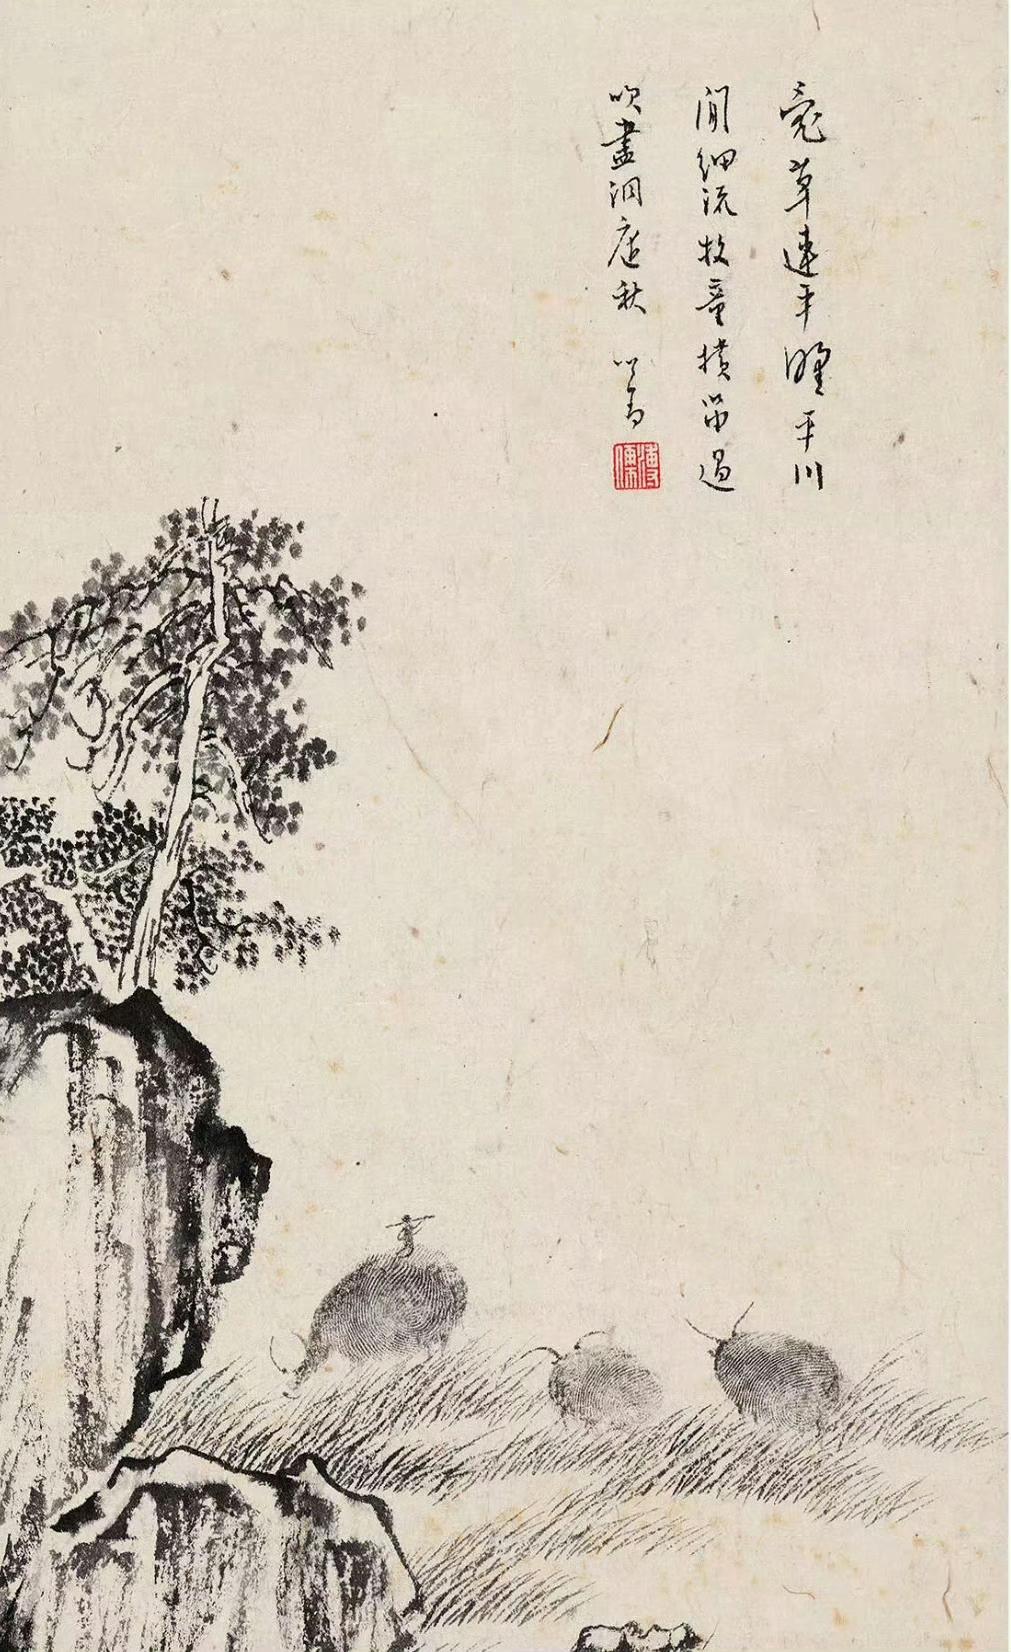 荒草連平野平川
間細流牧童橫笛過
吹盡洞庭秋 心畬
溥儒